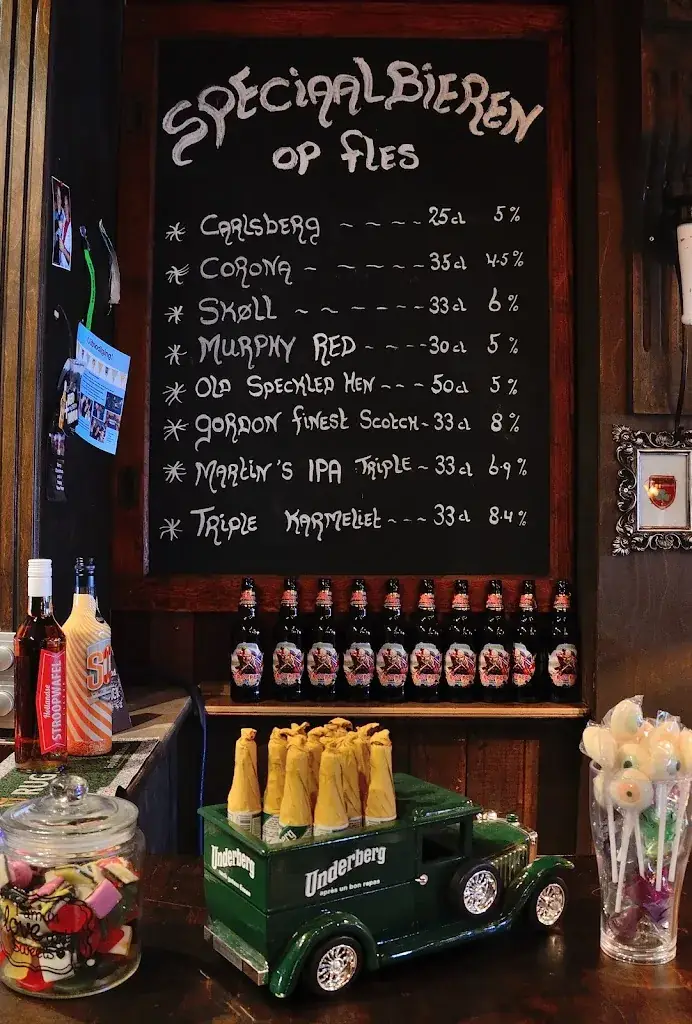 SPECIAALBIEREN
OP FLES
* CARLSBERG - - - - - 25cl 5%
* CORONA - - - - - - 35cl 4.5%
* SKØLL - - - - - - - 33cl 6%
* MURPHY RED - - - - 30cl 5%
* OLD SPECKLED HEN - - - 50cl 5%
* GORDON FINEST SCOTCH - 33cl 8%
* MARTIN'S IPA TRIPLE - 33cl 6.9%
* TRIPLE KARMELIET - - - 33cl 8.4%
Hollandse
STROOPWAFEL
Underberg
Underberg
après un bon repas
love
sweets